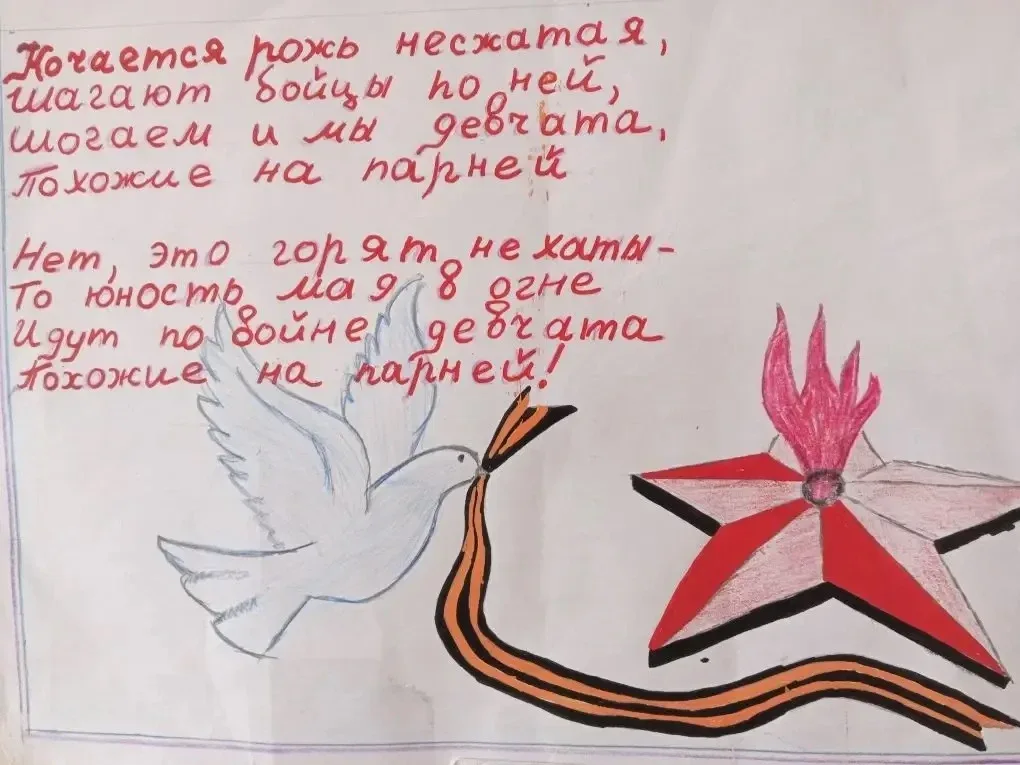 Кочается рожь несжатая,
шагают бойцы по ней,
шогаем и мы девчата,
Похожие на парней
Нет, это горят не хаты-
То юность мая в огне
Идут по войне девчата
Похожие на парней!